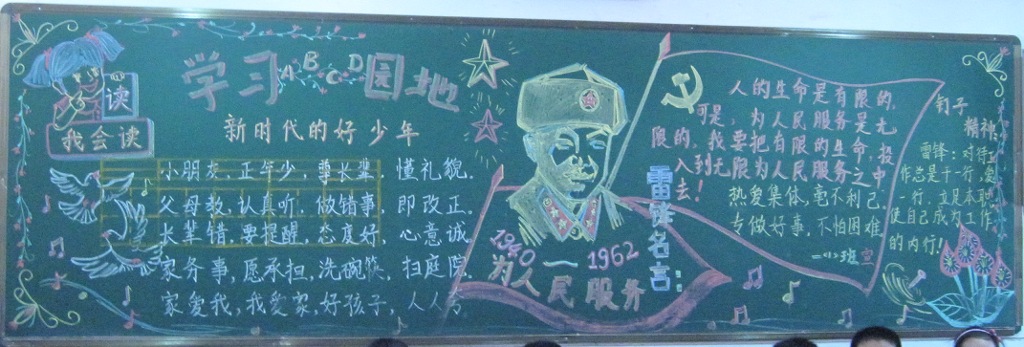 读
我会读
学习ABCD园地
新时代的好少年
小朋友，正年少，尊长辈，懂礼貌。
父母教，认真听，做错事，即改正。
长辈错，要提醒，态度好，心意诚。
家务事，愿承担，洗碗筷，扫庭院。
家爱我，我爱家，好孩子，人人夸
1940—1962
为人民服务
雷锋名言：
人的生命是有限的，
可是，为人民服务是无
限的，我要把有限的生命，投
入到无限为人民服务之中
去！
热爱集体，毫不利己，
专做好事，不怕困难
一(1)班宣
钉子
精神
雷锋：对待工
作总是干一行，爱
一行，立足本职，
使自己成为工作
的内行！